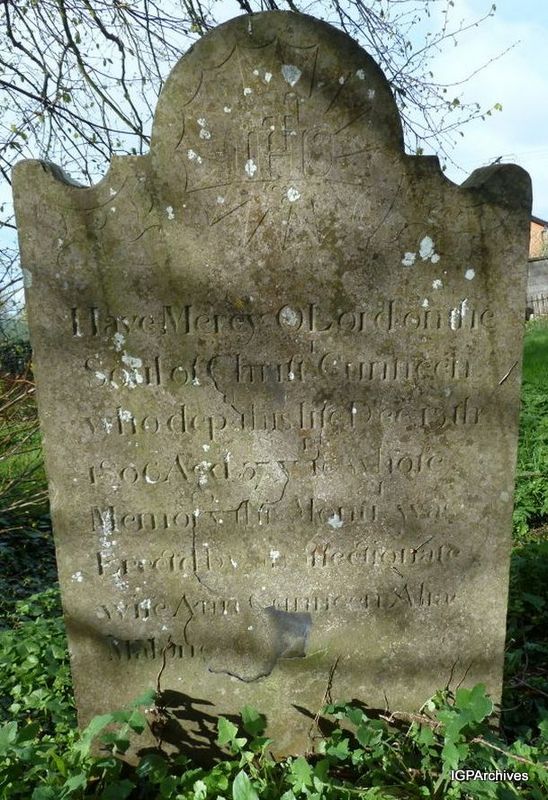 IHS
Have Mercy O Lord on the
Soul of Christr Cunneen
who depd this life Decr 13th
1806 Aged 57 yrs to whose
Memory this Monut was
Erectd by affectionate
wife Ann Cunneen Alias
Malone
IGPArchives